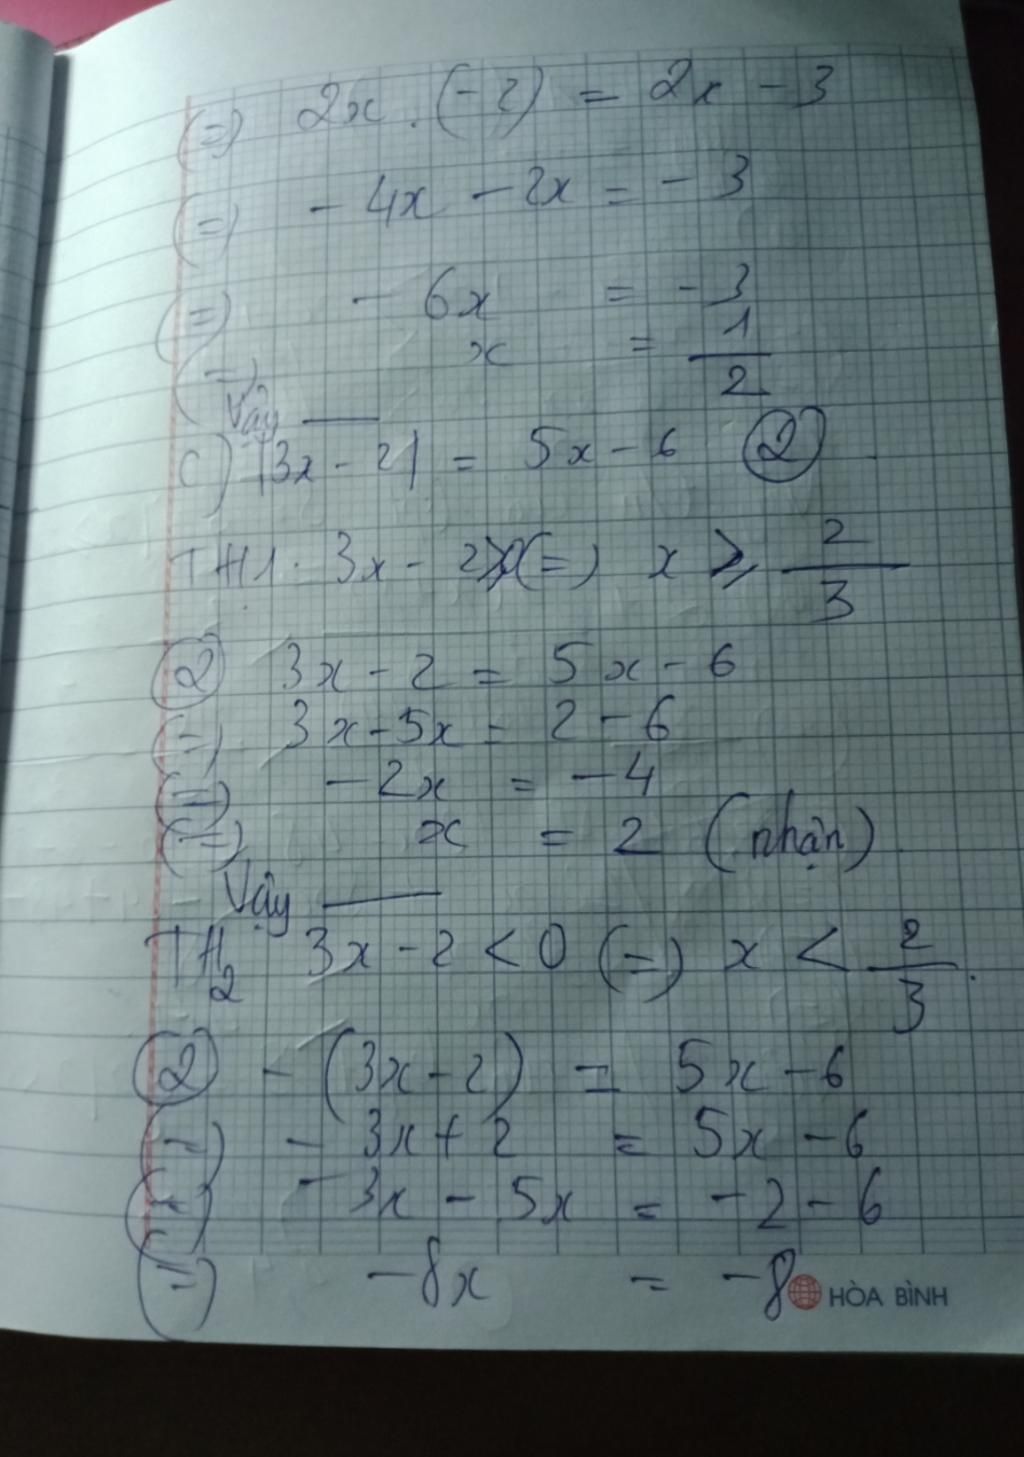 (=) 2x . (-2) = 2x - 3
(=) - 4x - 2x = - 3
(=) - 6x = - 3
(=) x = 1/2
Vậy ___
c) |3x - 2| = 5x - 6 (2)
TH1. 3x - 2 ≥ 0 (=) x ≥ 2/3
(2) 3x - 2 = 5x - 6
(=) 3x - 5x = 2 - 6
(=) - 2x = - 4
(=) x = 2 (nhận)
Vậy ___
TH2 3x - 2 < 0 (=) x < 2/3.
(2) - (3x - 2) = 5x - 6
(=) - 3x + 2 = 5x - 6
(=) - 3x - 5x = - 2 - 6
(=) - 8x = - 8
HÒA BÌNH